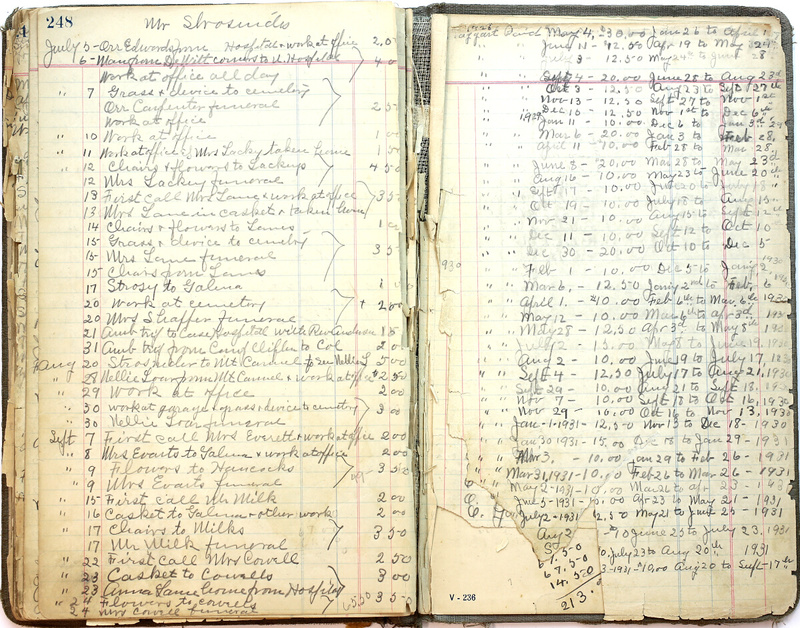 248
Mr Strosnides
July 5 - Orr Edwards from Hospital & work at office 2.00
6 - Man from DeWitt corners to U. Hospital
Work at office all day 4.0
" 7 Grass & device to cemetery
Orr Carpenter funeral 2.50
Work at office
" 10 Work at office 1 00
" 11 Work at office & Mrs Lackey taken home 1 50
" 12 Chairs & flowers to Lackeys 4 50
12 Mrs Lackey funeral
13 First call Mrs Lane & work at office 3 50
13 Mrs Lane in casket & taken home
14 Chairs & flowers to Lanes 1 00
15 Grass & device to cemetery
15 Mrs Lane funeral 3 5
15 Chairs from Lanes
17 Strosy to Galena 1
20 Work at cemetery
20 Mrs Shaffer funeral 2 00
21 Amb trip to Case, Hospital with Rev 1 5
31 Amb trip from Camp Clifton to Col 2 00
Aug 20 to Mt Carmel 5 00
" 28 Nellie from Mt Carmel & work at office 2 50
" 29 Work at office 2 00
" 30 work at garage & grass & device to cemetery 3 00
" 30 Nellie funeral
Sept 7 First call Mrs Everett & work at office 2 00
" 8 Mrs Evarts to Galena & work at office 2 00
" 9 Flowers to Hancocks 3 50
" 9 Mrs Evarts funeral
" 15 First call Mr Milk 2 00
" 16 Casket to Galena & other work 2 00
" 17 Chairs to Milks 3 50
17 Mr Milk funeral
" 22 First call Mrs Cowell 2 50
" 23 Casket to Cowells 3 00
" 23 Anna Lane home from Hospital
" 24 Flowers to Cowells 65.50 3 5
24 Mrs Cowell funeral
1928 May 4, - 30.00 Jan 26 to April 1
" " June 11 - 12.50 Apr 19 to May 24
" " July 3 - 12.50 May 24th to June 28
" " Sept 4 - 20.00 June 28 to Aug 23d
" " Oct 3 - 12.50 Aug 23 to Sept 27th
" " Nov 13 - 12.50 Sept 27 to Nov 1st
" " Dec 10 - 12.50 Nov 1st to Dec 6th
" " 1929 Jan 11 - 10.00 Dec 6 to Jan 3d
" " Mar 6 - 20.00 Jan 3 to Feb 28,
" " April 11 - 10.00 Feb 28 to Mar 28,
" " June 8 - 20.00 Mar 28 to May 23d
" " Aug 16 - 10.00 May 23 to June 20th
" " Sept 17 - 10.00 June 20 to July 18
" " Oct 19 - 10.00 July 18 to Aug 15
" " Nov 21 - 10.00 Aug 15 to Sept 12
" " Dec 11 - 10.00 Sept 12 to Oct 10
" " Dec 30 - 20.00 Oct 10 to Dec 5
1930 " Feb 1 - 10.00 Dec 5 to Jany 2 1930
" " Mar 6, - 10.00 Jany 2nd to Feb, 6
" " April 1. - 10.00 Feb 6th to Mar, 6th, 1930
" " May 12 - 10.00 Mar 6th to Apr 3d, 1930
" " May 28 - 12.50 Apr 3d to May 8th, 1930
" " July 2 - 15.00 May 8 to June 19, 1930
" " Aug 2 - 10.00 June 19 to July 17, 1930
" " Sept 4 - 12.50 July 17 to Aug 21, 1930
" " Sept 29 - 10.00 Aug 21 to Sept 18, 1930
" " Nov 7 - 10.00 Sept 18 to Oct 16, 1930
" " Nov 29 - 10.00 Oct 16 to Nov 13, 1930
" Jan-1-1931 - 12.50 Nov 13 to Dec 18-1930
" Jan 30 1931 - 15.00 Dec 18 to Jan 29 - 1931
" Mar 3, - 10.00 Jan 29 to Feb 26 - 1931
" Mar 31, 1931 - 10.00 Feb 26 to Mar 26 - 1931
May 2 - 1931 - 10.00 Mar 26 to Apr 23
June 5 - 1931 - 10.00 Apr 23 to May 21 - 1931
July 2 - 1931 12.50 May 21 to June 25 - 1931
Aug 2 10 June 25 to July 23, 1931
10, July 23 to Aug 20th 1931
3-1931-10.00 Aug 20 to Sept 17th
61.50
67.50
14.50
213.
V - 236